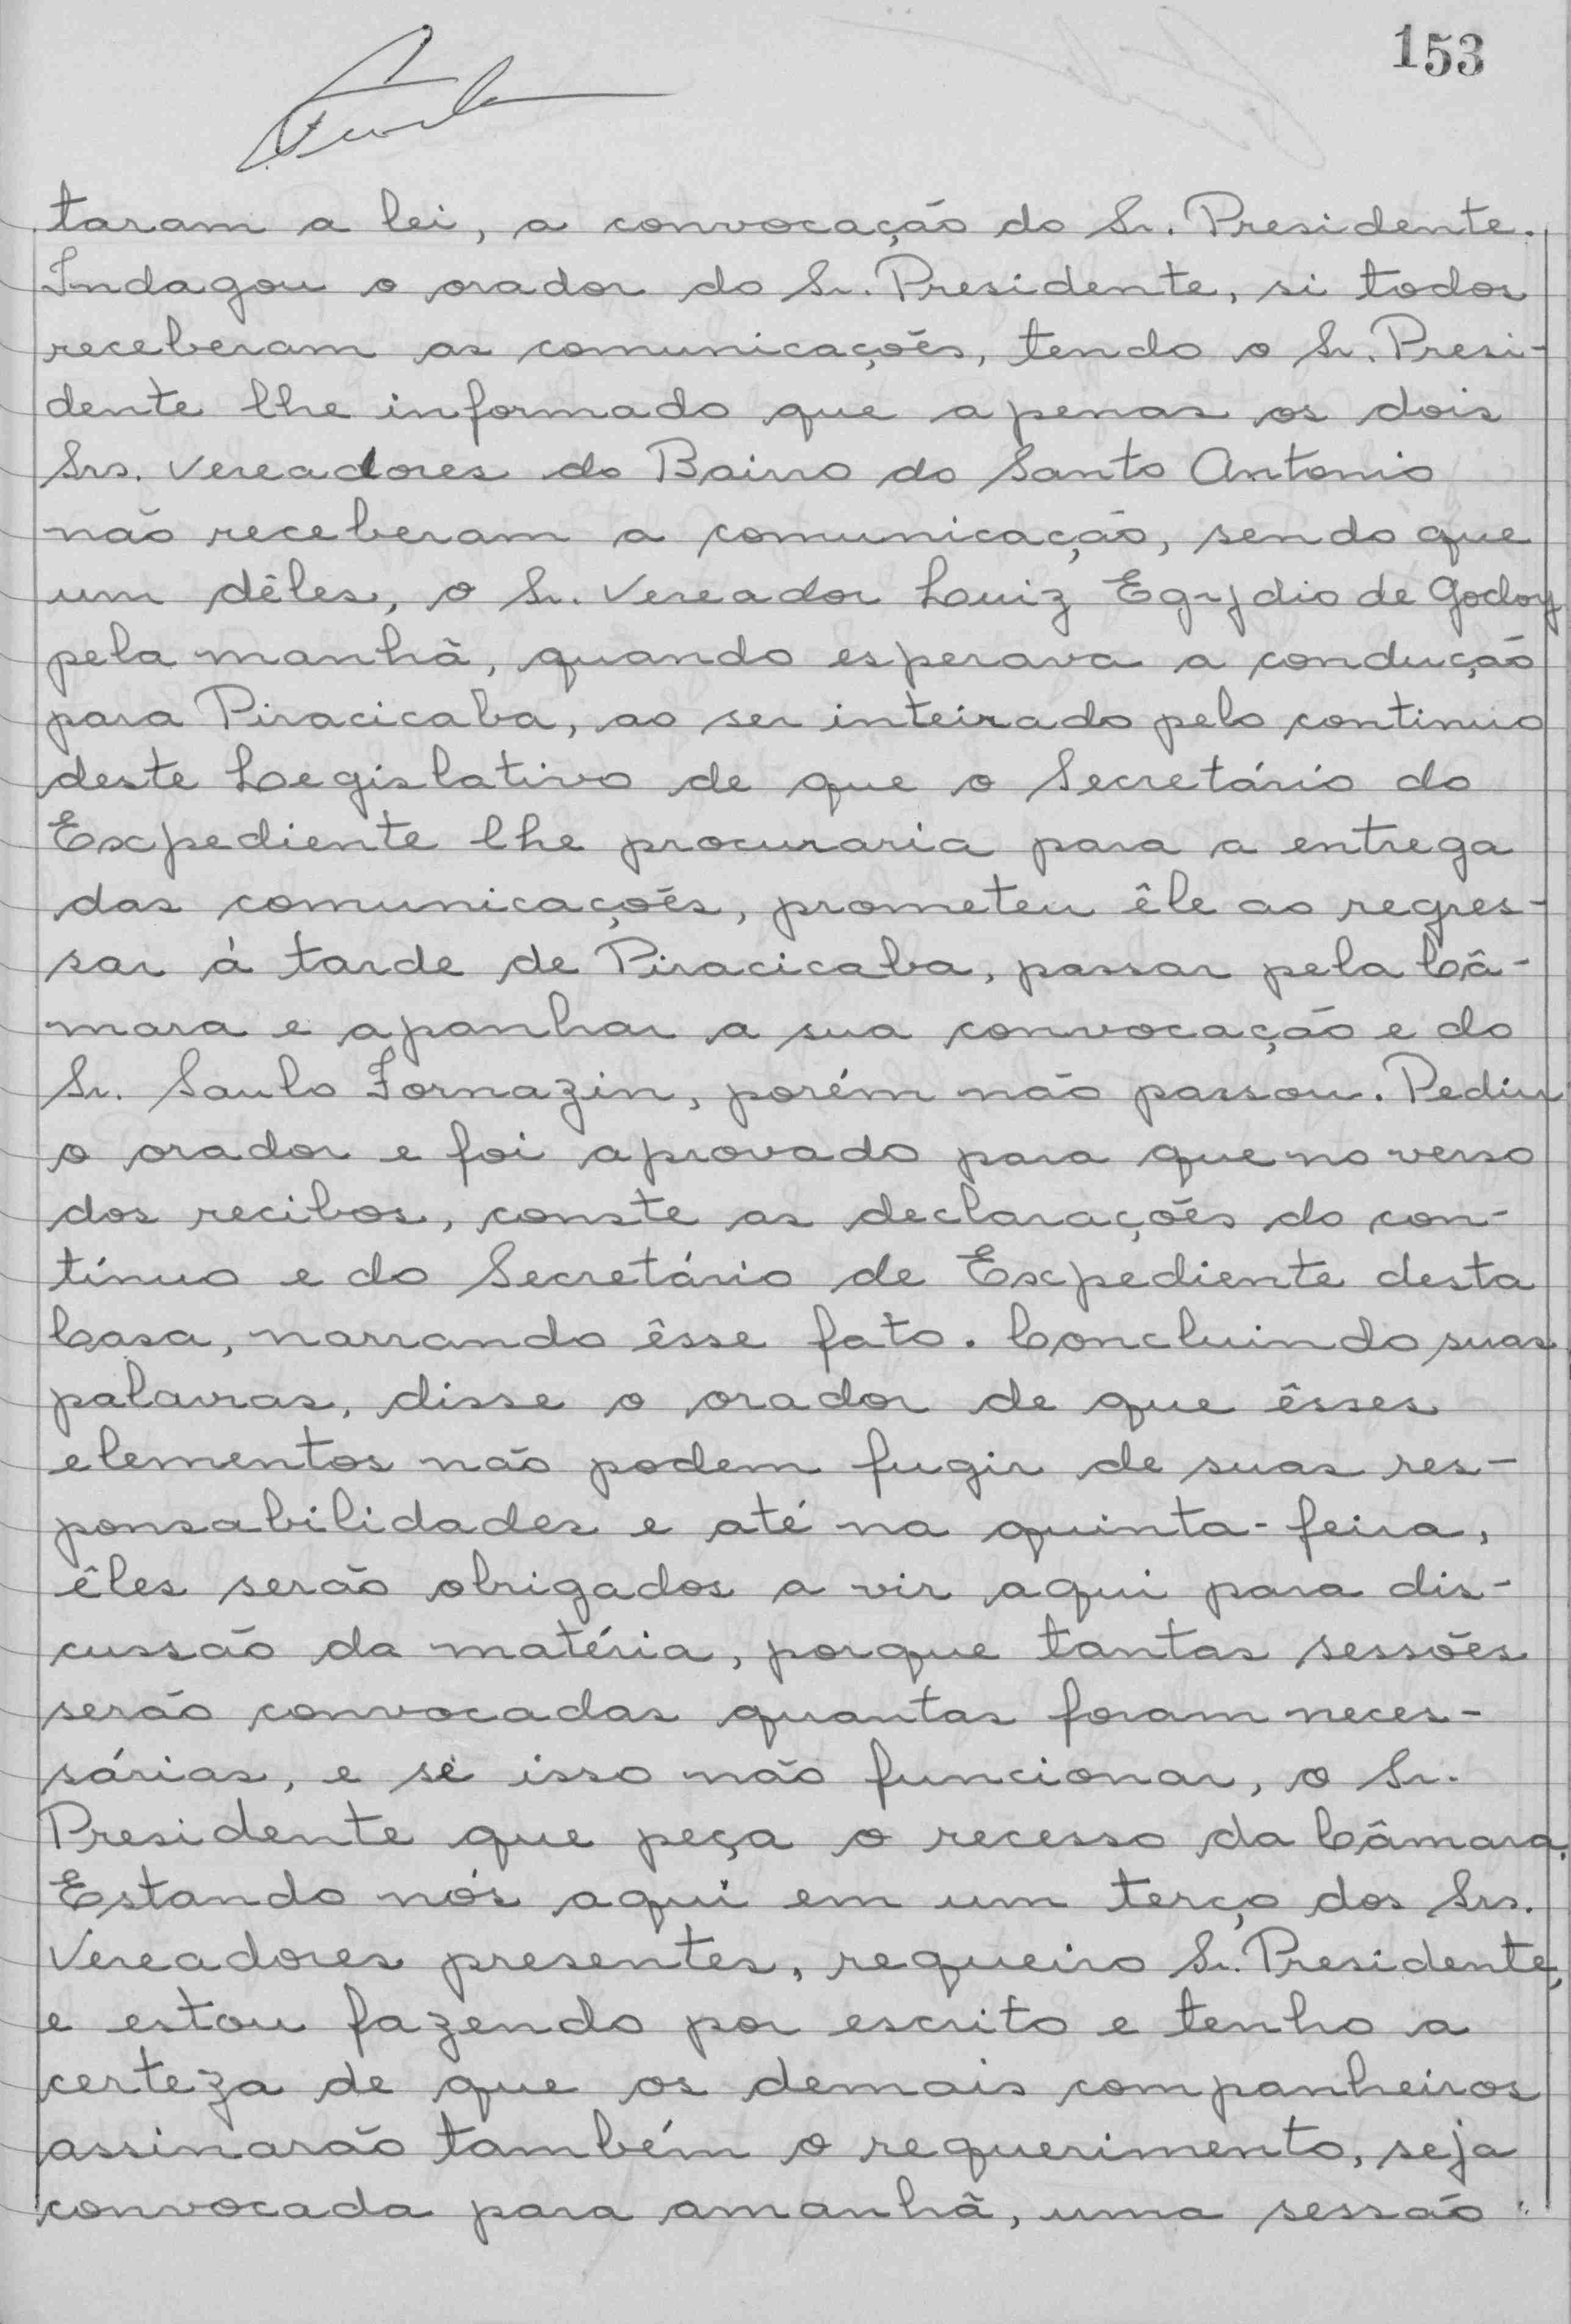 153
taram a lei, a convocação do Sr. Presidente.
Indagou o orador do Sr. Presidente, si todos
receberam as comunicações, tendo o Sr. Presi-
dente lhe informado que apenas os dois
Srs. Vereadores do Bairro do Santo Antonio
não receberam a comunicação, sendo que
um dêles, o Sr. Vereador Luiz Egydio de Godoy
pela manhã, quando esperava a condução
para Piracicaba, ao ser inteirado pelo continuo
deste Legislativo de que o Secretário do
Expediente lhe procuraria para a entrega
das comunicações, prometeu êle ao regres-
sar á tarde de Piracicaba, passar pela Câ-
mara e apanhar a sua convocação e do
Sr. Saulo Fornazin, porém não passou. Pediu
o orador e foi aprovado para que no verso
dos recibos, conste as declarações do con-
tínuo e do Secretário de Expediente desta
Casa, narrando êsse fato. Concluindo suas
palavras, disse o orador de que êsses
elementos não podem fugir de suas res-
ponsabilidades e até na quinta-feira,
êles serão obrigados a vir aqui para dis-
cussão da matéria, porque tantas sessões
serão convocadas quantas foram neces-
sárias, e se isso não funcionar, o Sr.
Presidente que peça o recesso da Câmara.
Estando nós aqui em um terço dos Srs.
Vereadores presentes, requeiro Sr. Presidente,
e estou fazendo por escrito e tenho a
certeza de que os demais companheiros
assinarão também o requerimento, seja
convocada para amanhã, uma sessão